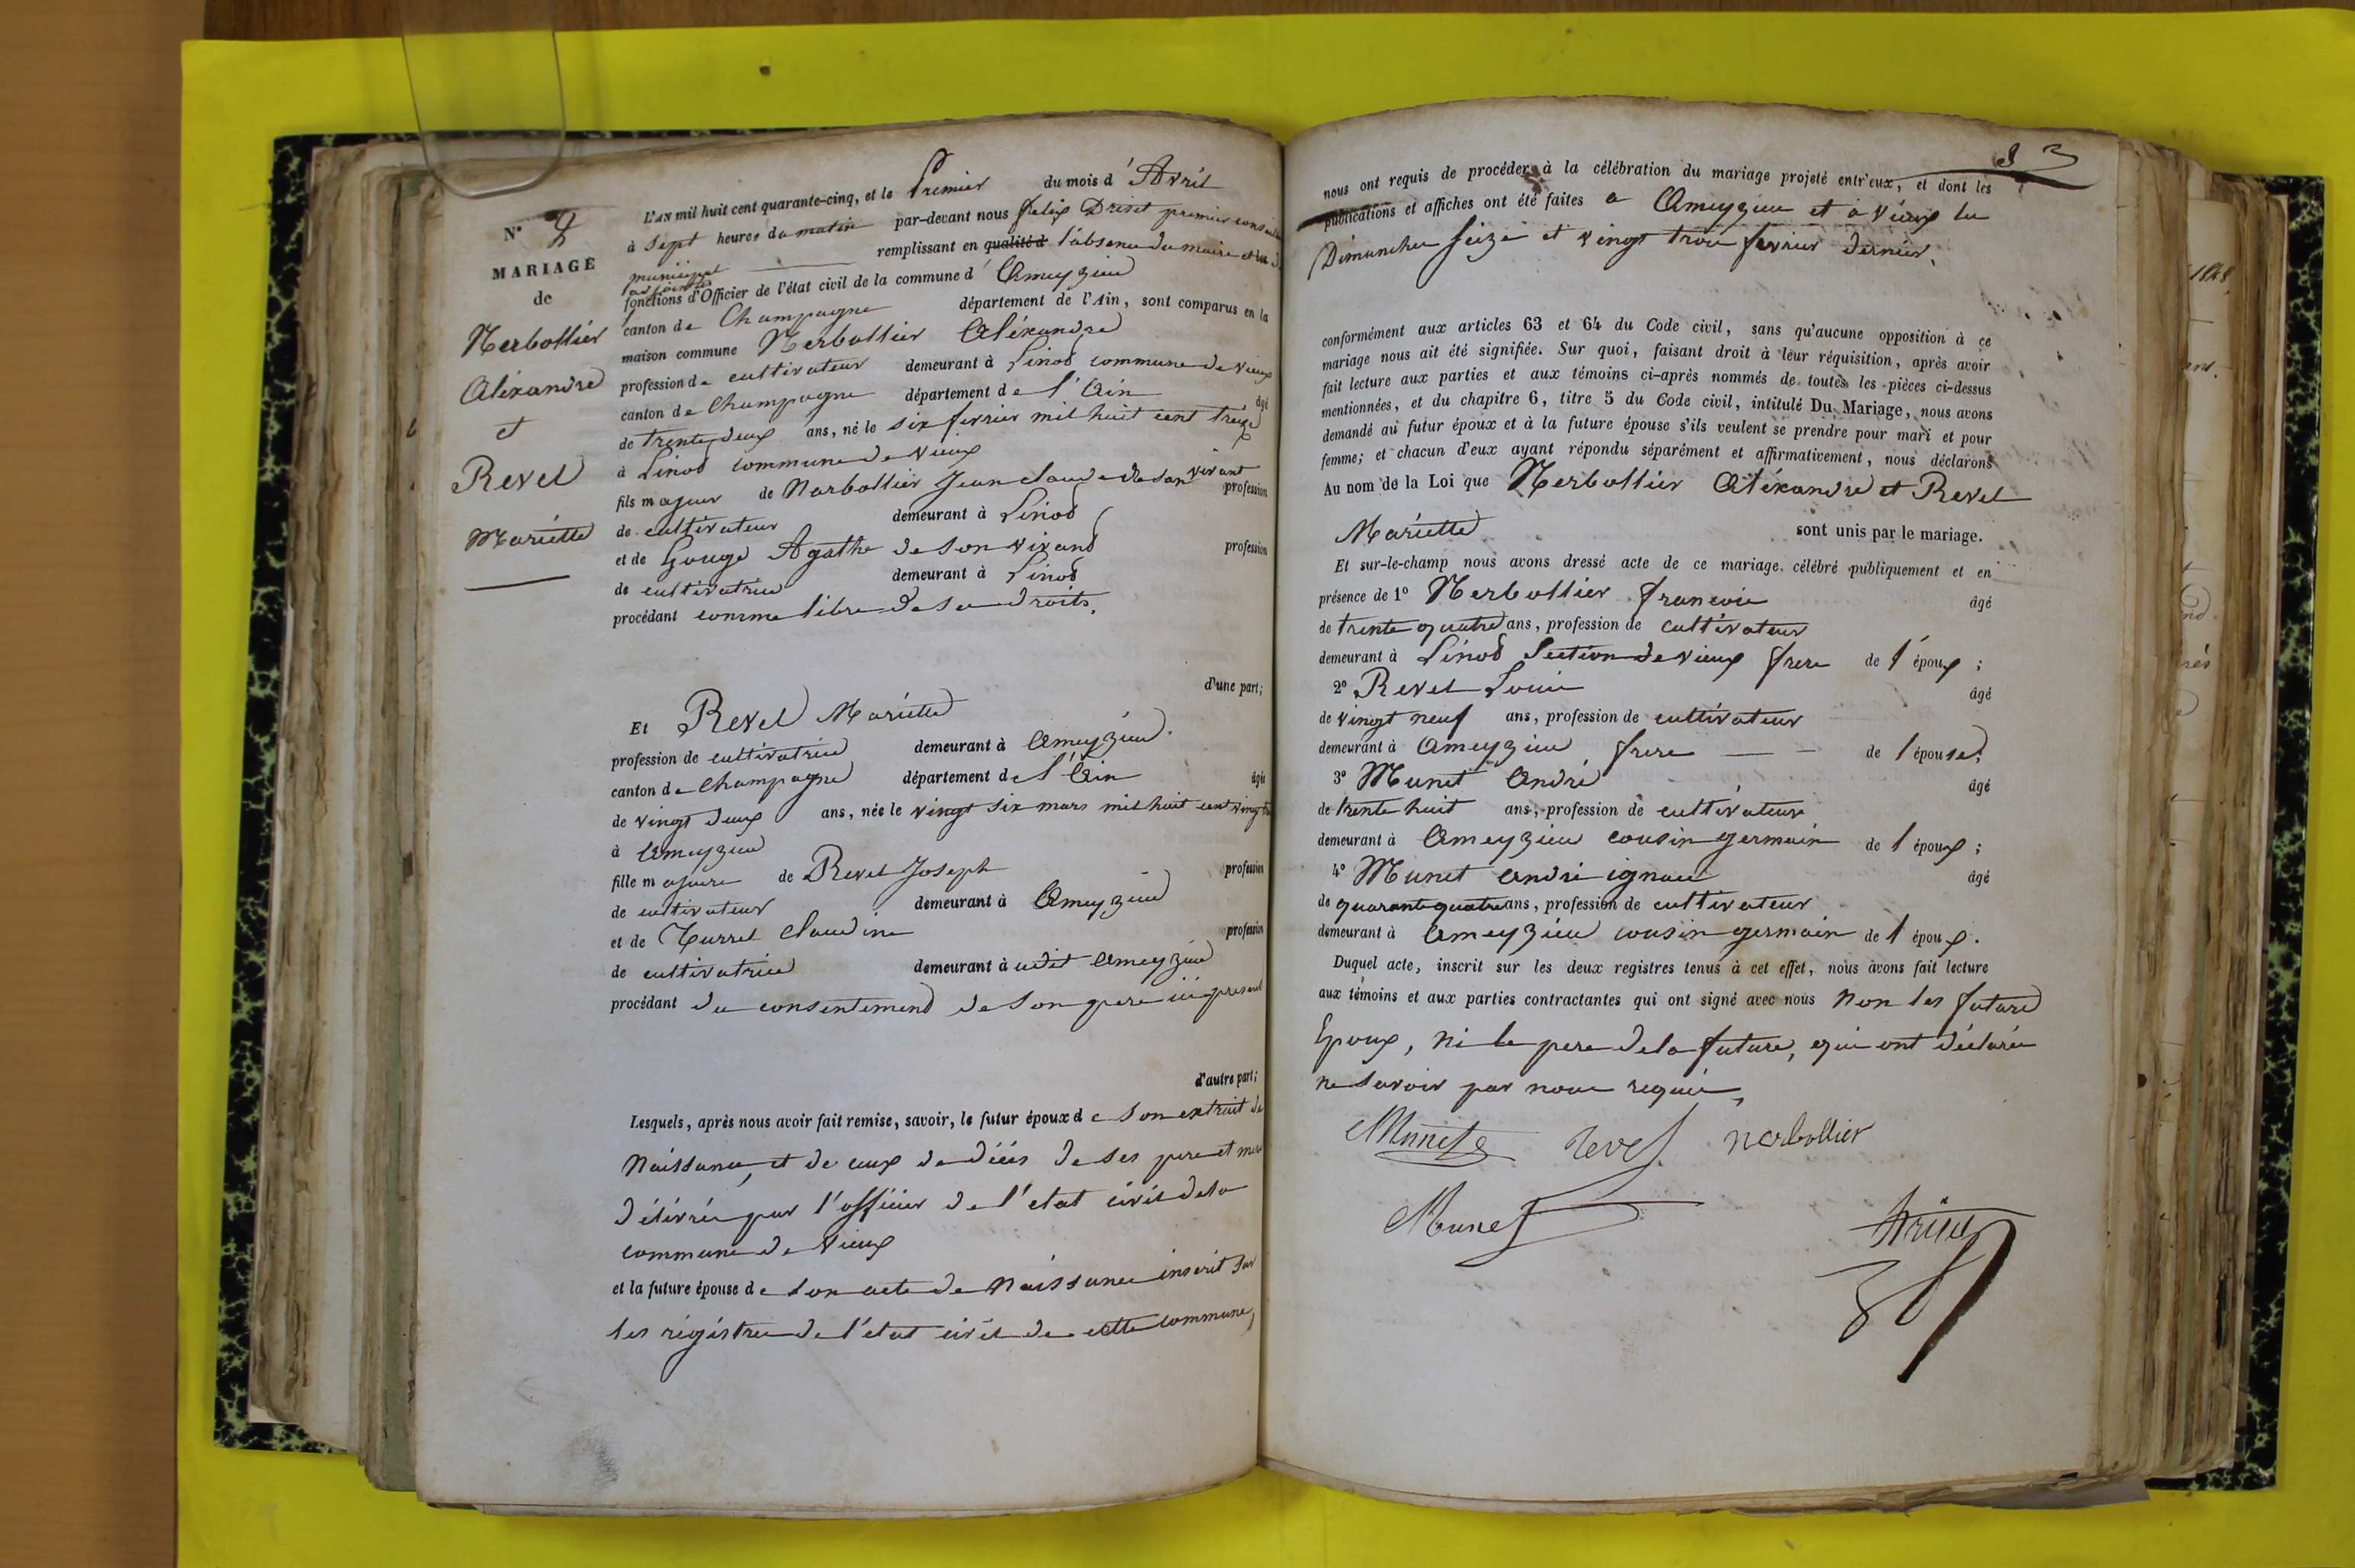 N° 2
MARIAGE
de
Nerbollier
Aléxandre
et
Revel
Mariette
L'AN mil huit cent quarante-cinq, et le Premier du mois d'Avril
à Sept heures du matin par-devant nous felix Drivet premier conseiller
municipal remplissant en qualité d l'absence du maire et
adjoint les
fonctions d'Officier de l'état civil de la commune d'Ameyzieu
canton de Champagne département de l'Ain, sont comparus en la
maison commune Nerbollier Aléxandre
profession de cultivateur demeurant à Linod commune de vieux
canton de Champagne département de l'Ain âgé
de trente deux ans, né le six fevrier mil huit cent treize
à Linod commune de vieux
fils majeur de Narbollier Jean claude de son vivant profession
de cultivateur demeurant à Linod
et de Gouge Agathe de son vivand profession
de cultivatrice demeurant à Linod
procédant comme libre de ses droits.
d'une part;
Et Revel Mariette
profession de cultivatrice demeurant à Ameyzieu.
canton de Champagne département de l'Ain âgée
de vingt deux ans, née le vingt six mars mil huit cent vingt
à Ameyzieu
fille majeure de Revel Joseph profession
de cultivateur demeurant à Ameyzieu
et de Claudine profession
de cultivatrice demeurant à udit Ameyzieu
procédant du consentemend de son pere ici présent
d'autre part;
Lesquels, après nous avoir fait remise, savoir, le futur époux de son extrait de
Naissance, et de ceux de décès de ses pere et mere
délivrés par l'officier de l'etat civil de la
commune de Vieux
et la future épouse de son acte de Naissance inscrit sur
les régistres de l'etat civil de cette commune,
83
nous ont requis de procéder à la célébration du mariage projeté entr'eux, et dont les
publications et affiches ont été faites a Ameyzieu et à Vieux les
Dimanches seize et vingt trois fevrier dernier.
conformément aux articles 63 et 64 du Code civil, sans qu'aucune opposition à ce
mariage nous ait été signifiée. Sur quoi, faisant droit à leur réquisition, après avoir
fait lecture aux parties et aux témoins ci-après nommés de toutes les pièces ci-dessus
mentionnées, et du chapitre 6, titre 5 du Code civil, intitulé Du Mariage, nous avons
demandé au futur époux et à la future épouse s'ils veulent se prendre pour mari et pour
femme; et chacun d'eux ayant répondu séparément et affirmativement, nous déclarons
Au nom de la Loi que Nerbollier Aléxandre et Revel
Mariette sont unis par le mariage.
Et sur-le-champ nous avons dressé acte de ce mariage célébré publiquement et en
présence de 1° Nerbollier francois âgé
de trente quatre ans, profession de cultivateur
demeurant à Linod Section de vieux frere de l'époux;
2° Revel Louis âgé
de vingt neuf ans, profession de cultivateur
demeurant à Ameyzieu frere de l'épouse;
3° Munet André âgé
de trente huit ans, profession de cultivateur
demeurant à Ameyzieu cousin germain de l'époux;
4° Munet andré ignace âgé
de quarante quatre ans, profession de cultivateur
demeurant à Ameyzieu cousin germain de l'époux.
Duquel acte, inscrit sur les deux registres tenus à cet effet, nous avons fait lecture
aux témoins et aux parties contractantes qui ont signé avec nous Non les future
Epoux, ni le pere de la future, qui ont déclarés
ne savoir par nous requis,
Munet revel narbollier
Munet Drivet